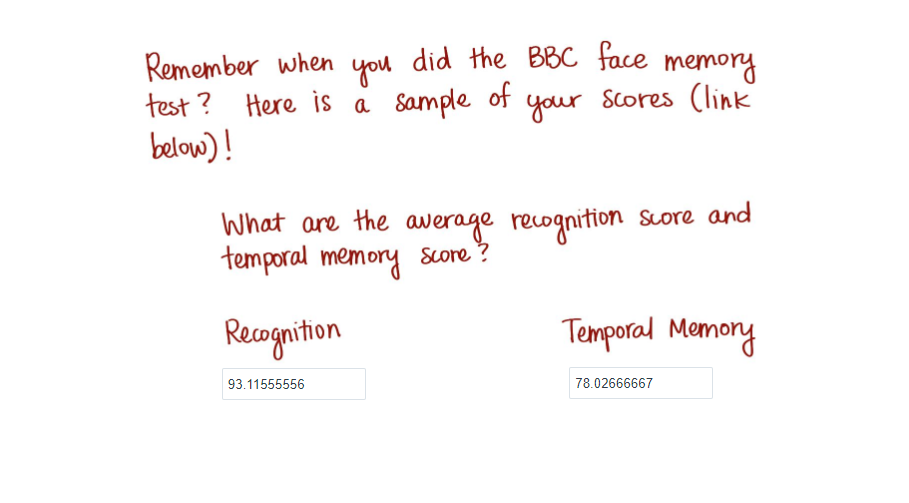 Remember when you did the BBC face memory
test? Here is a sample of your scores (link
below)!
What are the average recognition score and
temporal memory score?
Recognition Temporal Memory
93.11555556 78.02666667